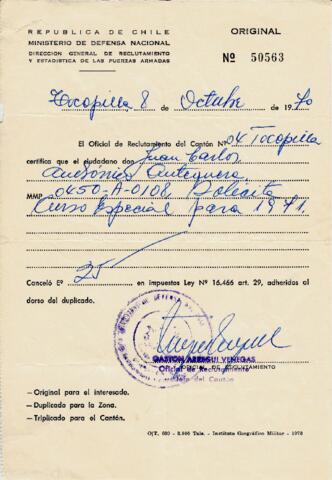 REPUBLICA DE CHILE
MINISTERIO DE DEFENSA NACIONAL
DIRECCION GENERAL DE RECLUTAMIENTO
Y ESTADISTICA DE LAS FUERZAS ARMADAS
ORIGINAL
Nº 50563
Tocopilla 8 de Octubre de 1970
El Oficial de Reclutamiento del Cantón Nº 04 Tocopilla
certifica que el ciudadano don Juan Carlos
Antequera
MMP 0450-A-0108, Solicita
Curso Especial para 1971.
Canceló Eº 25 en impuestos Ley Nº 16.466 art. 29, adheridos al
dorso del duplicado.
GASTON ARREGUI VENEGAS
Oficial de Reclutamiento
OFICIAL DE RECLUTAMIENTO
del Cantón
—Original para el interesado.
—Duplicado para la Zona.
—Triplicado para el Cantón.
Instituto Geográfico Militar - 1970